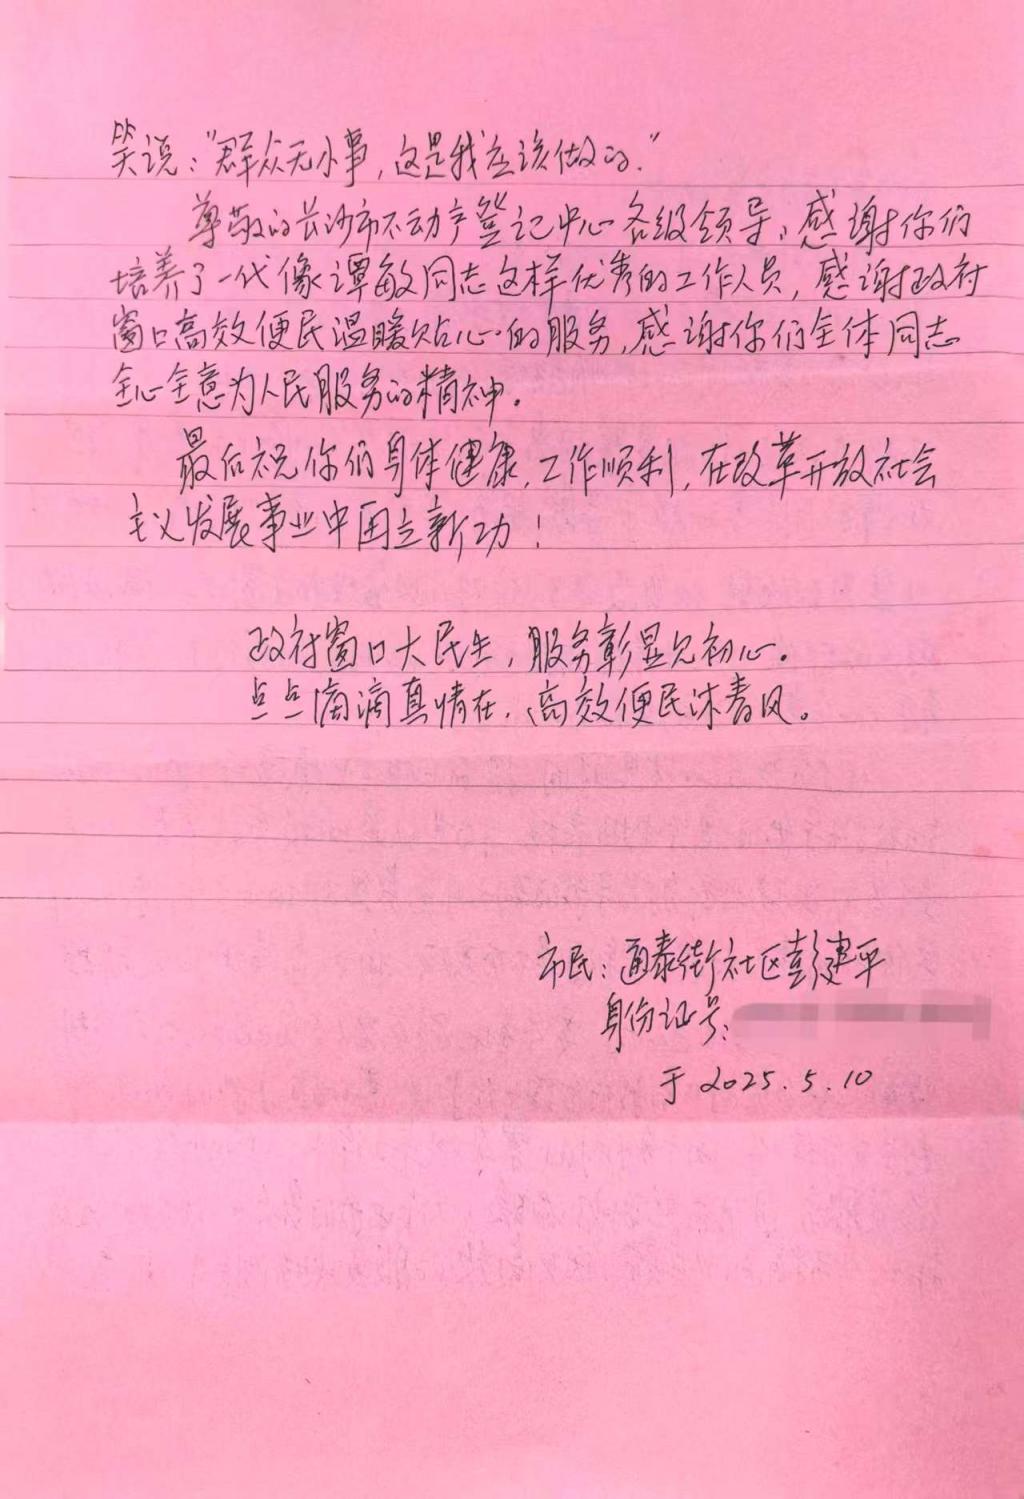 笑说："群众无小事,这是我应该做的."
尊敬的长沙市不动产登记中心各级领导:感谢你们
培养了一代像谭敏同志这样优秀的工作人员,感谢政府
窗口高效便民温暖贴心的服务,感谢你们全体同志
全心全意为人民服务的精神。
最后祝你们身体健康,工作顺利,在改革开放社会
主义发展事业中再立新功!
政府窗口大民生,服务彰显见初心。
点点滴滴真情在,高效便民沐春风。
市民:通泰街社区彭建平
身份证号:
于2025.5.10